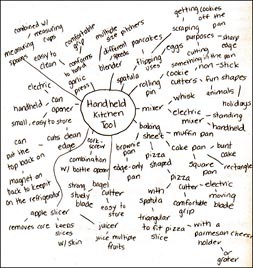 Handheld
Kitchen
Tool
combined w/
measuring
cups
measuring
spoons
easy to
clean
comfortable
grip
conforms
to hand
garlic
press
multiple size pitchers
different
speeds
blender
spatula
flipping
uses
pancakes
eggs
getting cookies
off the
pan
scraping
purposes
sharp
edge
something
non-stick
cookie
cutters
fun shapes
animals
holidays
rolling
pin
whisk
mixer
electric
standing
handheld
baking
sheet
muffin pan
cake pan
bunt
cake
square
rectangle
brownie
pan
edge-only
shaped
pizza
pan
pizza
cutter
electric
moving
blade
comfortable
grip
with
spatula
triangular
to fit pizza
slice
with a
parmesan cheese
holder
or
grater
electric
handheld
small, easy to store
can
opener
cuts clean
edge
can
put the
top back on
magnet on
back to keep it
on the refrigerator
cork-
screw
combination
w/ bottle opener
strong
sturdy
blade
bagel
cutter
easy to
store
apple slicer
removes core
keeps
slices
w/ skin
juicer
juice multiple
fruits